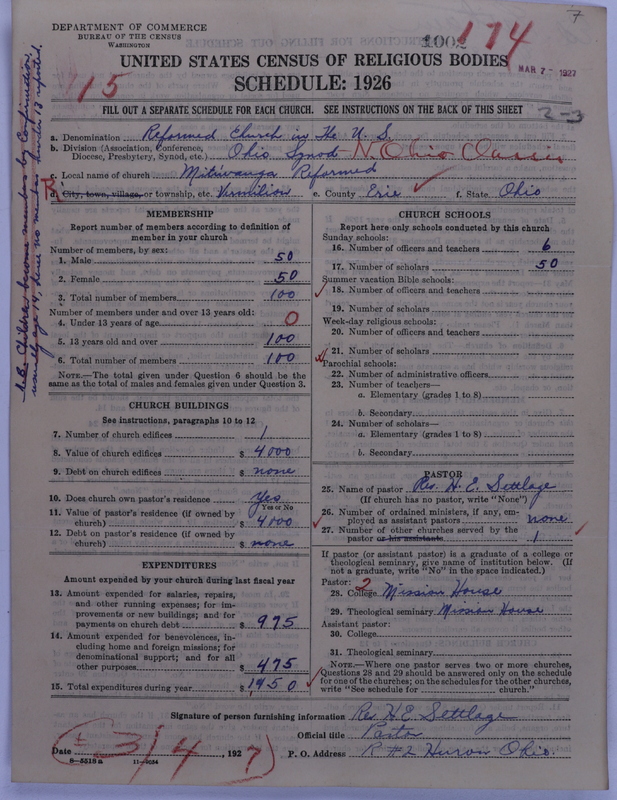 7
DEPARTMENT OF COMMERCE
BUREAU OF THE CENSUS
WASHINGTON
1002
174
115
UNITED STATES CENSUS OF RELIGIOUS BODIES
MAR 7 - 1927
SCHEDULE: 1926
FILL OUT A SEPARATE SCHEDULE FOR EACH CHURCH. SEE INSTRUCTIONS ON THE BACK OF THIS SHEET
2-3
a. Denomination Reformed Church in the U. S.
b. Division (Association, Conference,
Diocese, Presbytery, Synod, etc.) Ohio Synod - N. Ohio Classis
c. Local name of church Mitiwanga Reformed
d. City, town, village, or township, etc. Vermilion e. County Erie f. State Ohio
N.B. Children become members by Confirmation,
usually age 14, hence no members under 13 reported.
MEMBERSHIP
Report number of members according to definition of
member in your church
Number of members, by sex:
1. Male 50
2. Female 50
3. Total number of members 100
Number of members under and over 13 years old:
4. Under 13 years of age 0
5. 13 years old and over 100
6. Total number of members 100
NOTE.—The total given under Question 6 should be the
same as the total of males and females given under Question 3.
CHURCH BUILDINGS
See instructions, paragraphs 10 to 12
7. Number of church edifices 1
8. Value of church edifices $ 4000
9. Debt on church edifices $ none
10. Does church own pastor's residence Yes
Yes or No
11. Value of pastor's residence (if owned by
church) $ 4000
12. Debt on pastor's residence (if owned by
church) $ none
EXPENDITURES
Amount expended by your church during last fiscal year
13. Amount expended for salaries, repairs,
and other running expenses; for im-
provements or new buildings; and for
payments on church debt $ 975
14. Amount expended for benevolences, in-
cluding home and foreign missions; for
denominational support; and for all
other purposes $ 475
15. Total expenditures during year $ 1450
CHURCH SCHOOLS
Report here only schools conducted by this church
Sunday schools:
16. Number of officers and teachers 6
17. Number of scholars 50
Summer vacation Bible schools:
18. Number of officers and teachers
19. Number of scholars
Week-day religious schools:
20. Number of officers and teachers
21. Number of scholars
Parochial schools:
22. Number of administrative officers
23. Number of teachers—
a. Elementary (grades 1 to 8)
b. Secondary
24. Number of scholars—
a. Elementary (grades 1 to 8)
b. Secondary
PASTOR
25. Name of pastor Rev. H. E. Settlage
(If church has no pastor, write "None")
26. Number of ordained ministers, if any, em-
ployed as assistant pastors none
27. Number of other churches served by the
pastor or his assistants 1
If pastor (or assistant pastor) is a graduate of a college or
theological seminary, give name of institution below. (If
not a graduate, write "No" in the space indicated.)
Pastor: 2
28. College Mission House
29. Theological seminary Mission House
Assistant pastor:
30. College
31. Theological seminary
NOTE.—Where one pastor serves two or more churches,
Questions 28 and 29 should be answered only on the schedule
for one of the churches; on the schedules for the other churches,
write "See schedule for church."
Signature of person furnishing information Rev H E Settlage
Official title Pastor
Date ± 3/4, 1927
P. O. Address R #2 Huron Ohio.
8-5518 a 11-9034